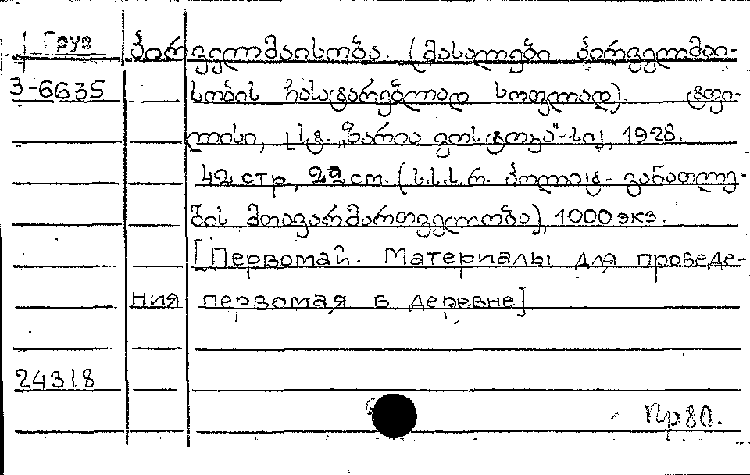 Груз პირველმაისობა. (მასალები პირველმაი-
3-6635 სობის ჩასატარებლად სოფლად). ტფი-
ლისი, ს.ტ. „ზარია ვოსტოკა"-სი, 1928.
42 стр, 22 cm. (ს.ს.ს.რ. პოლიტ-განათლე-
ბის მთავარმართველობა), 1000 экз.
[Первомай. Материалы для проведе-
ния первомая в деревне]
24318
Пр 80.